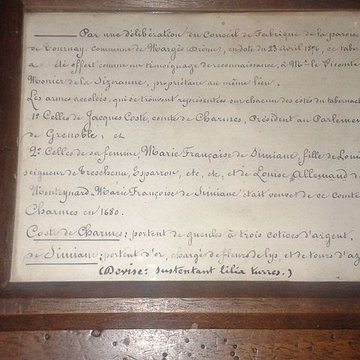 Par une délibération du Conseil de Fabrique de la paroisse
de Tournay, commune de Margès (Drôme), en date du 23 avril 1896, ce taber
a été offert comme un témoignage de reconnaissance, à Mr le Vicomte
Monier de la Sizeranne, propriétaire au même lieu.
Les armes accolées, qui se trouvent représentées sur chacun des côtés du taberna
1º Celles de Jacques Coste, comte de Charmes, Président au Parlemen
de Grenoble; et
2º Celles de sa femme, Marie Françoise de Simiane, fille de Loui
seigneur de Treschenu, Esparron, etc, etc, et de Louise Allemand de
Monteynard. Marie Françoise de Simiane était veuve de ce comte
Charmes en 1680.
Coste de Charmes: portent de gueules à trois cotices d'argent.
de Simiane: portent d'or, chargé de fleurs de lys, et de tours d'az
(Devise: sustentant lilia turres.)